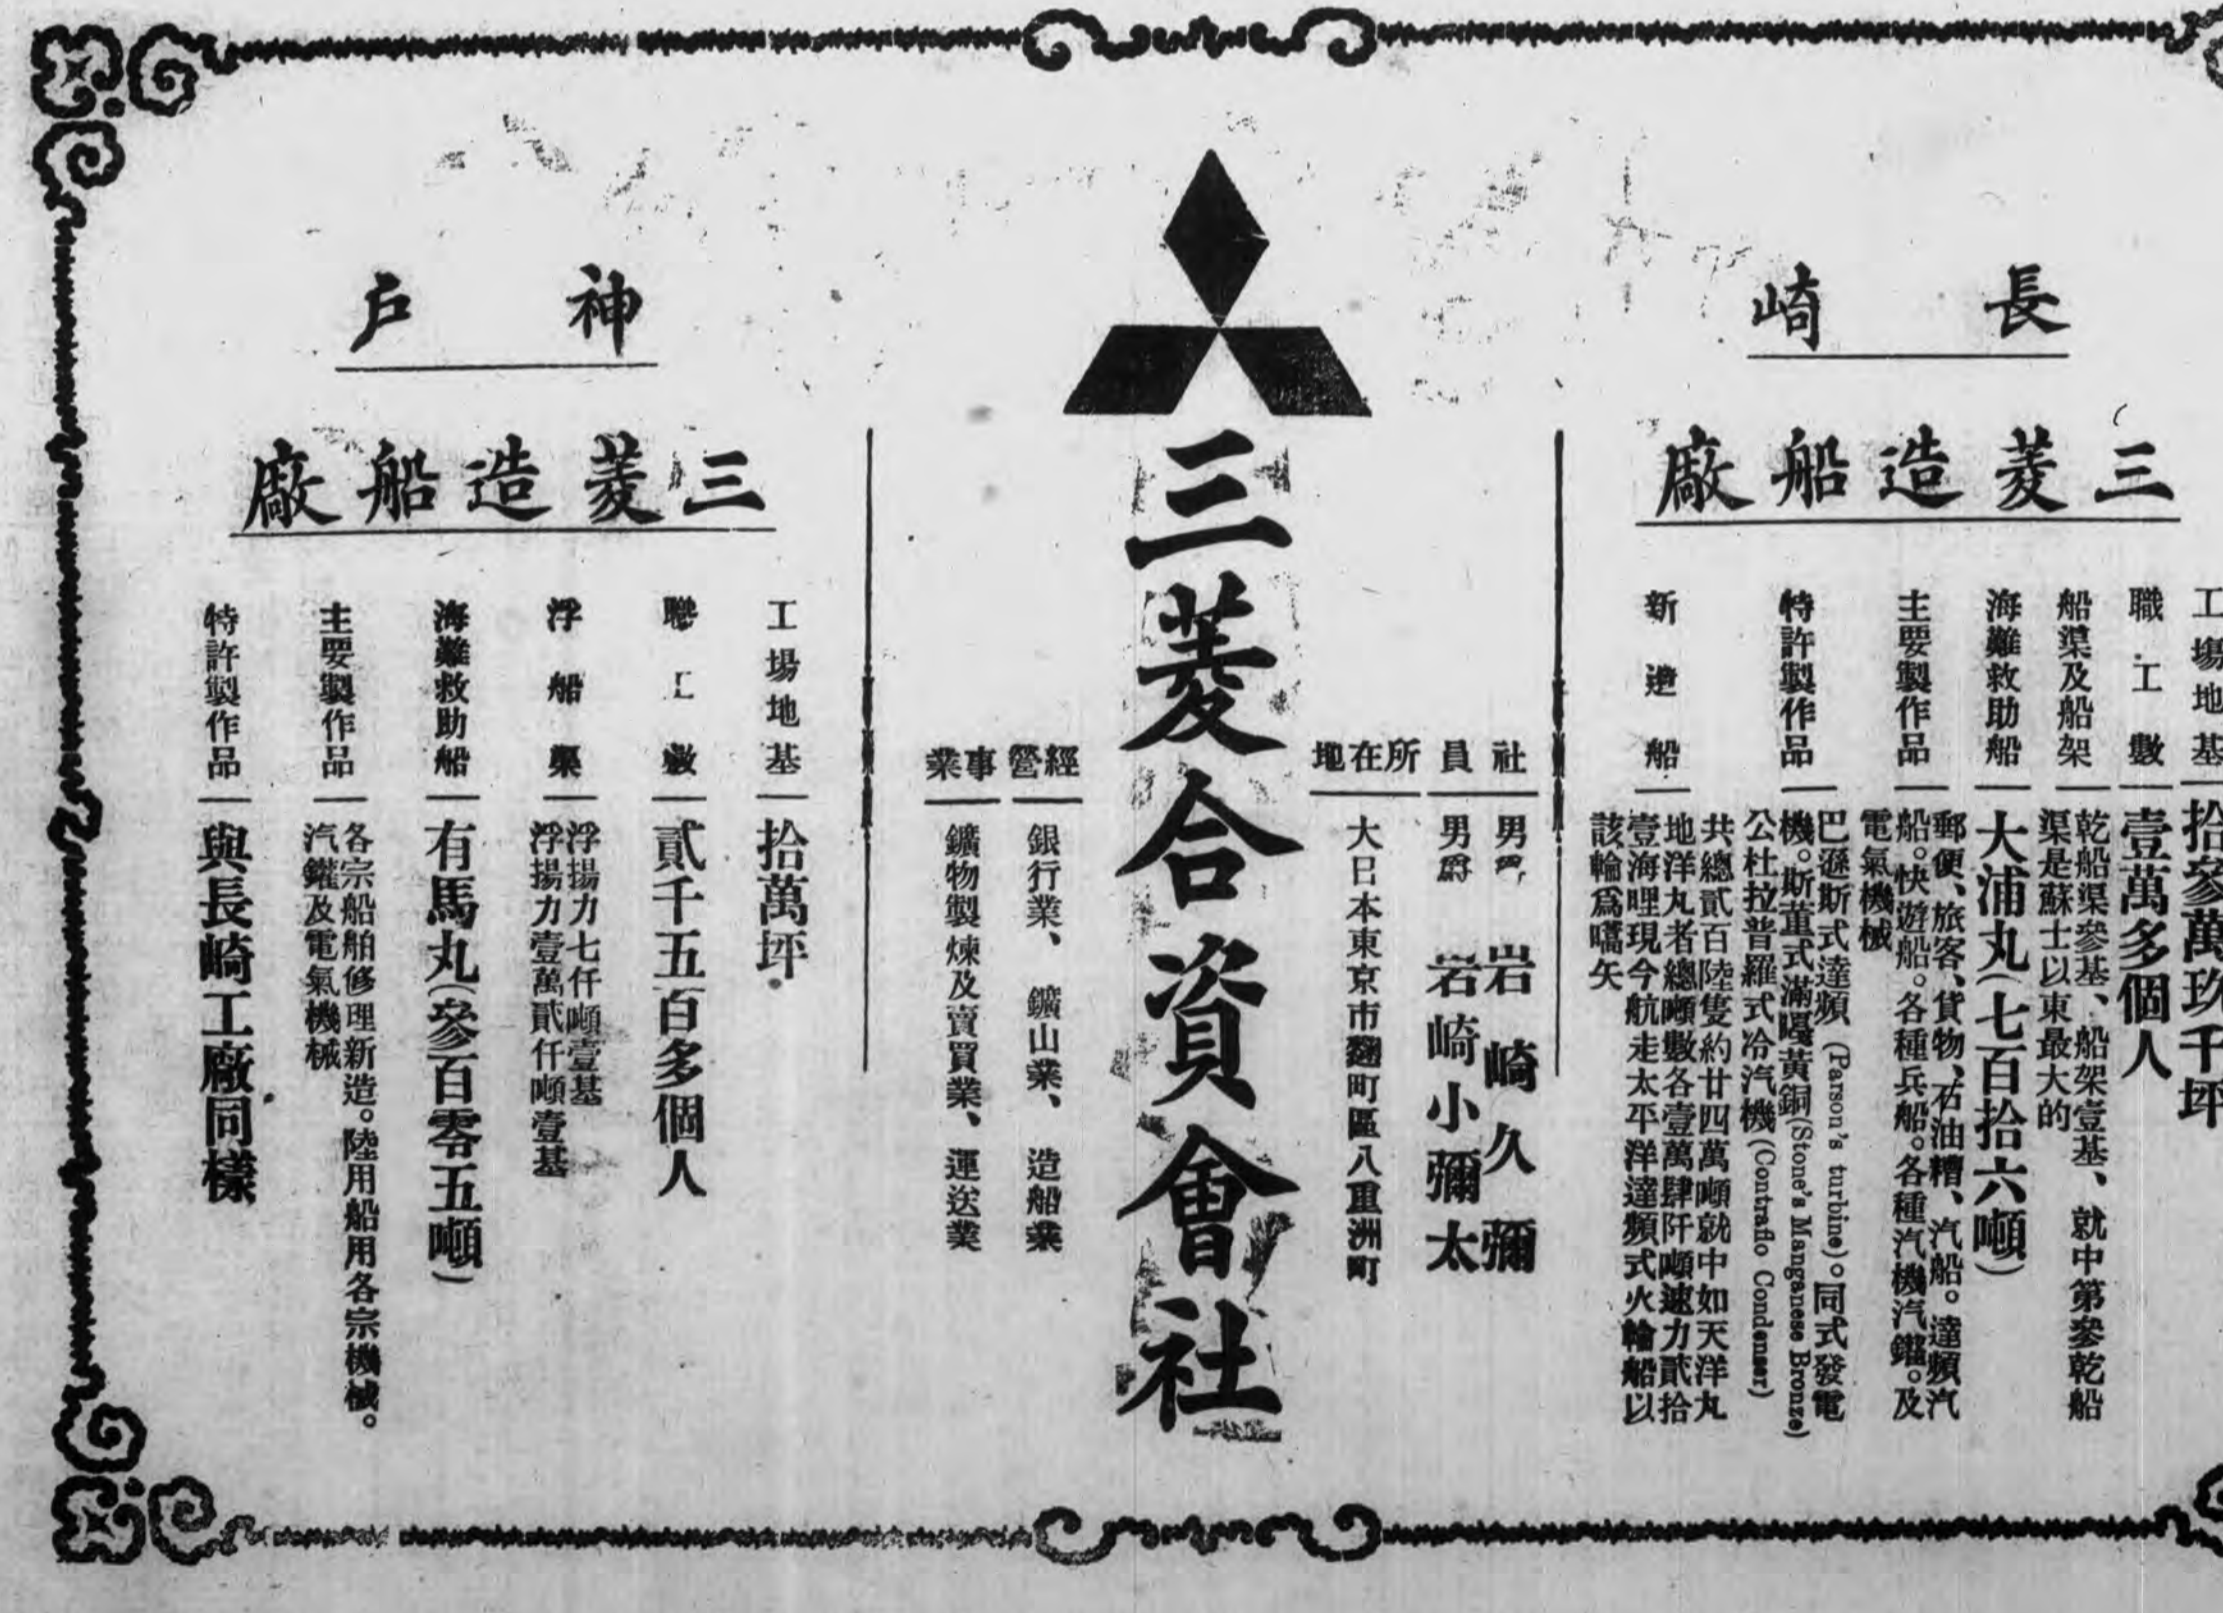 長崎
三菱造船廠
工場地基
拾參萬玖千坪
職工數
壹萬多個人
船渠及船架
乾船渠參基、船架壹基、就中第參乾船
渠是蘇士以東最大的
海難救助船
大浦丸(七百拾六噸)
主要製作品
郵便、旅客、貨物、石油糟、汽船。達頻汽
船。快遊船。各種兵船。各種汽機汽鑵。及
電氣機械
特許製作品
巴遜斯式達頻 (Parson's turbine)。同式發電
機。斯董式滿黃銅(Stone's Manganese Bronze)
公杜拉普羅式冷汽機(Contraflo Condenser)
新造船
共總貳百陸隻約廿四萬噸就中如天洋丸
地洋丸者總噸數各壹萬肆阡噸速力貳拾
壹海哩現今航走太平洋達頻式火輪船以
該輪爲嚆矢
三菱合資會社
社員
男爵 岩崎久彌
男爵 岩崎小彌太
所在地
大日本東京市麹町區八重洲町
經營事業
銀行業、鑛山業、造船業
鑛物製煉及賣買業、運送業
神戶
三菱造船廠
工場地基
拾萬坪
職工數
貳千五百多個人
浮船渠
浮揚力七仟噸壹基
浮揚力壹萬貳仟噸壹基
海難救助船
有馬丸(參百零五噸)
主要製作品
各宗船舶修理新造。陸用船用各宗機械。
汽鑵及電氣機械
特許製作品
與長崎工廠同樣